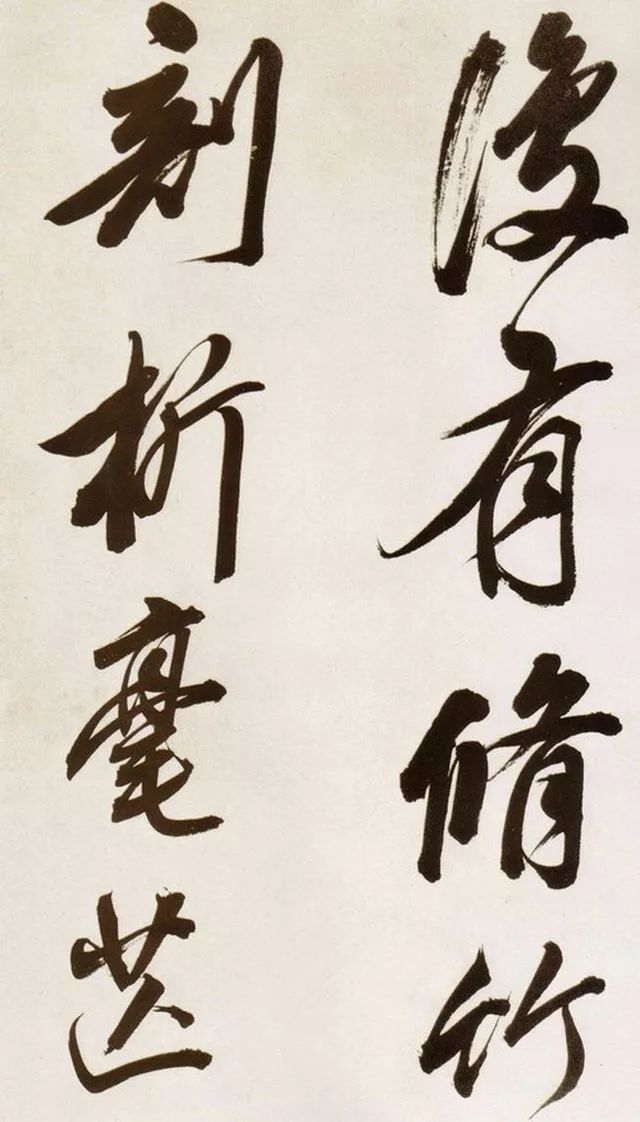 復有脩竹
刻析毫芒